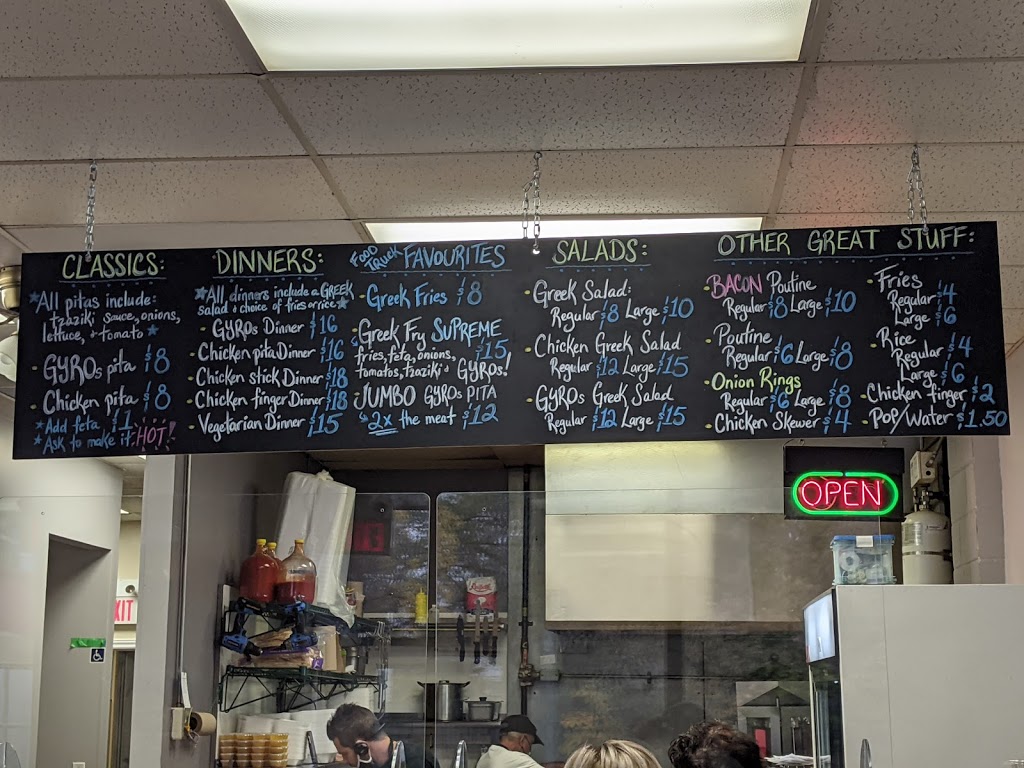 CLASSICS:
*All pitas include:
tzaziki sauce, onions,
lettuce, + tomato *
- GYROs pita $8
- Chicken pita $8
* Add feta $1
* Ask to make it HOT!
DINNERS:
*All dinners include a GREEK
salad & choice of fries or rice*
- GYROs Dinner $16
- Chicken pita Dinner $16
- Chicken stick Dinner $18
- Chicken finger Dinner $18
- Vegetarian Dinner $15
FOOD TRUCK FAVOURITES
- Greek Fries $8
- Greek Fry SUPREME $15
fries, feta, onions,
tomatos, tzaziki & GYROs!
- JUMBO GYROs PITA
2x the meat $12
SALADS:
- Greek Salad:
Regular $8 Large $10
- Chicken Greek Salad
Regular $12 Large $15
- GYROs Greek Salad
Regular $12 Large $15
OTHER GREAT STUFF:
- BACON Poutine
Regular $8 Large $10
- Poutine
Regular $6 Large $8
- Onion Rings
Regular $6 Large $8
- Chicken Skewer $4
- Fries
Regular $4
Large $6
- Rice
Regular $4
Large $6
- Chicken finger $2
- Pop/Water $1.50
OPEN
EXIT